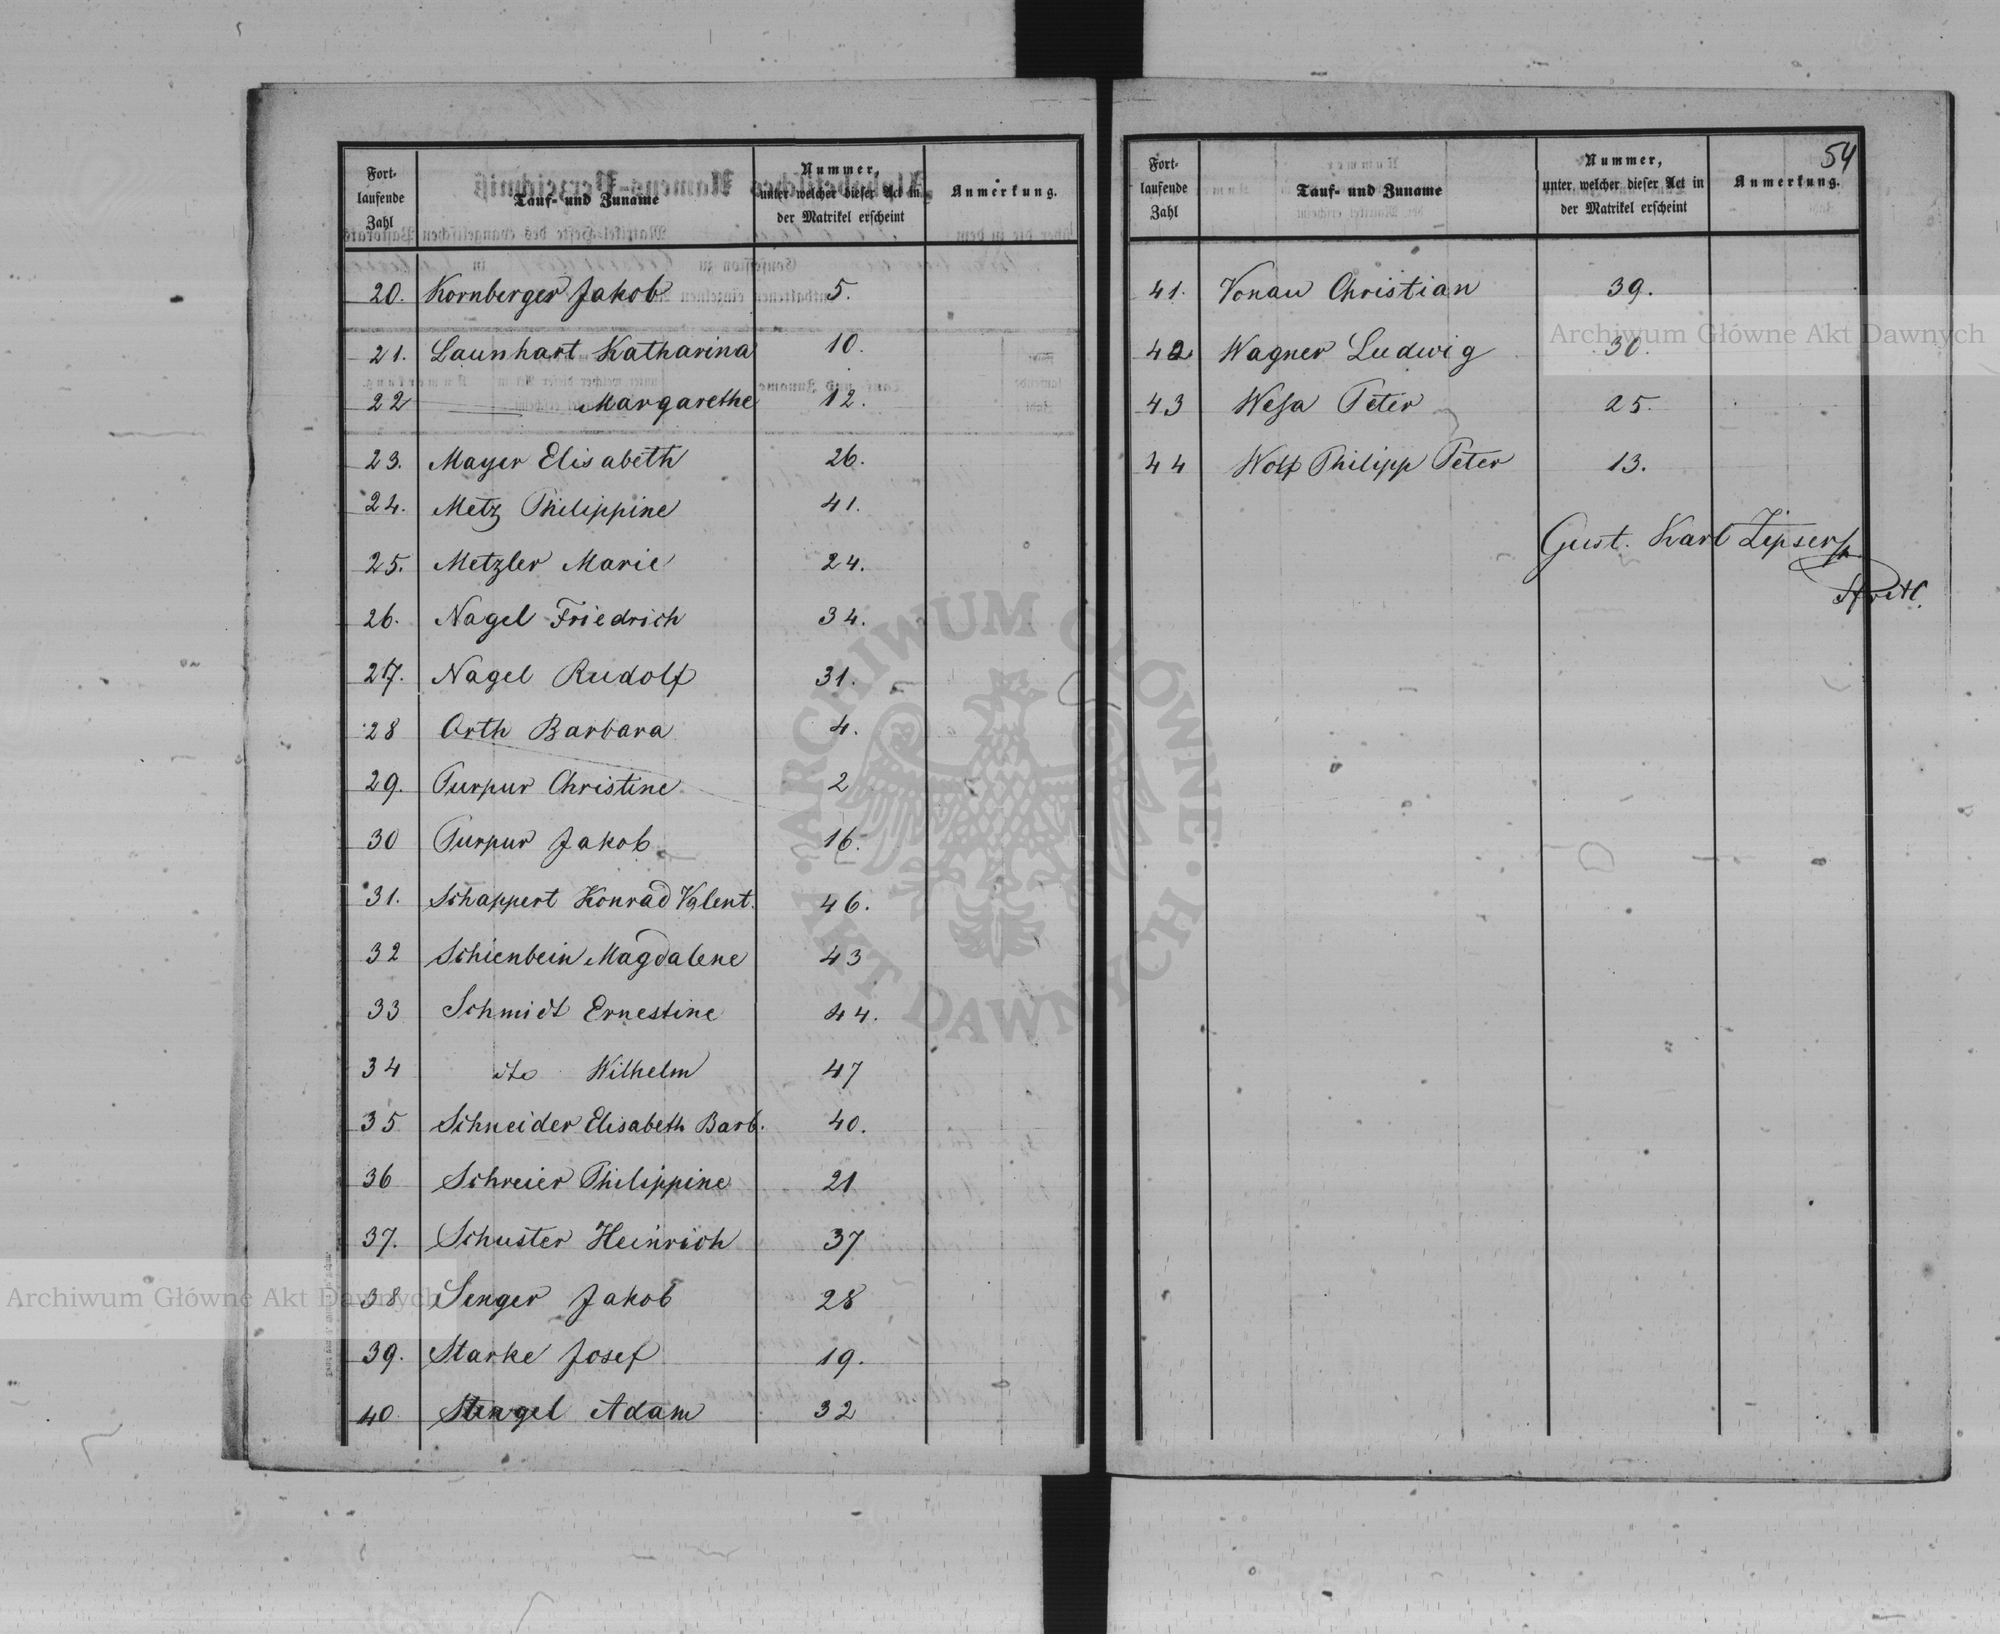 Fort-
laufende
Zahl
Tauf- und Zuname
Nummer,
unter welcher dieser Act in
der Matrikel erscheint
Anmerkung.
20. Kornberger Jakob 5.
21. Launhart Katharina 10.
22 —— Margarethe 12.
23. Mayer Elisabeth 26.
24. Metz Philippine 41.
25. Metzler Marie 24.
26. Nagel Friedrich 34.
27. Nagel Rudolf 31.
28 Orth Barbara 4.
29. Purpur Christine 2
30 Purpur Jakob 16.
31. Schappert Konrad Valent. 46.
32 Schienbein Magdalene 43
33 Schmidt Ernestine 44.
34 dto Wilhelm 47
35 Schneider Elisabeth Barb. 40.
36 Schreier Philippine 21
37. Schuster Heinrich 37
38 Senger Jakob 28
39. Starke Josef 19.
40. Stengel Adam 32
54
Fort-
laufende
Zahl
Tauf- und Zuname
Nummer,
unter welcher dieser Act in
der Matrikel erscheint
Anmerkung.
41. Vonau Christian 39.
42. Wagner Ludwig 30.
43 Wesa Peter 25.
44 Wolf Philipp Peter 13.
Gust. Karl Zipser
Archiwum Główne Akt Dawnych
Archiwum Główne Akt Dawnych
ARCHIWUM GŁÓWNE · AKT DAWNYCH ·